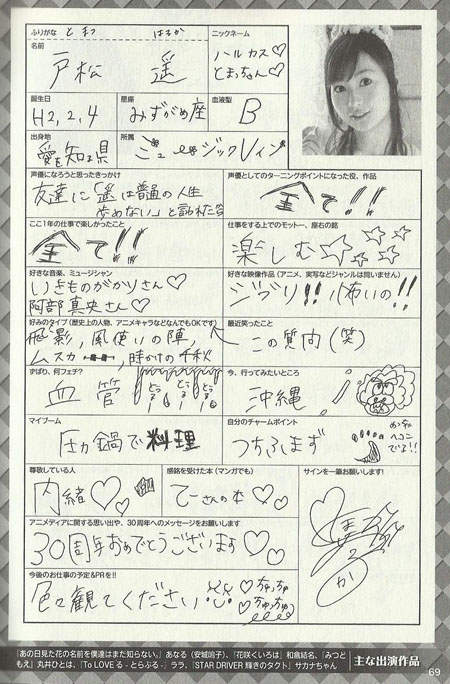 ふりがな と まつ はるか
名前
戸松 遥
ニックネーム
ハルカス♡
とまっちゃん♡
誕生日
H2, 2, 4
星座
みずがめ座
血液型
B
出身地
愛知県
所属
ミュージックレイン
声優になろうと思ったきっかけ
友達に「遥は普通の人生
歩めない」と言われた笑
声優としてのターニングポイントになった役、作品
全て!!
ここ1年の仕事で楽しかったこと
全て!!
仕事をする上でのモットー、座右の銘
楽しむ☆☆☆☆
好きな音楽、ミュージシャン
いきものがかりさん♡
阿部真央さん♡
好きな映像作品(アニメ、実写などジャンルは問いません)
ジブリ!! 怖いの!!
好みのタイプ(歴史上の人物、アニメキャラなどなんでもOKです)
飛影, 風使いの陣,
ムスカ, 時かけの千秋
最近笑ったこと
この質問(笑)
ずばり、何フェチ?
血管
今、行ってみたいところ
沖縄
マイブーム
圧力鍋で料理
自分のチャームポイント
つちふまず
尊敬している人
内緒♡♡
感銘を受けた本(マンガでも)
てーさんの本♡♡
サインを一筆お願いします!
アニメディアに関する思い出や、30周年へのメッセージをお願いします
30周年おめでとうございます♡♡
今後のお仕事の予定&PRを!!
色々観てください
ちゅっちゅ
ちゅっちゅ
『あの日見た花の名前を僕達はまだ知らない。』あなる(安城鳴子)、『花咲くいろは』和倉結名、『みつど
もえ』丸井ひとは、『To LOVEる -とらぶる-』ララ、『STAR DRIVER 輝きのタクト』サカナちゃん
主な出演作品
69